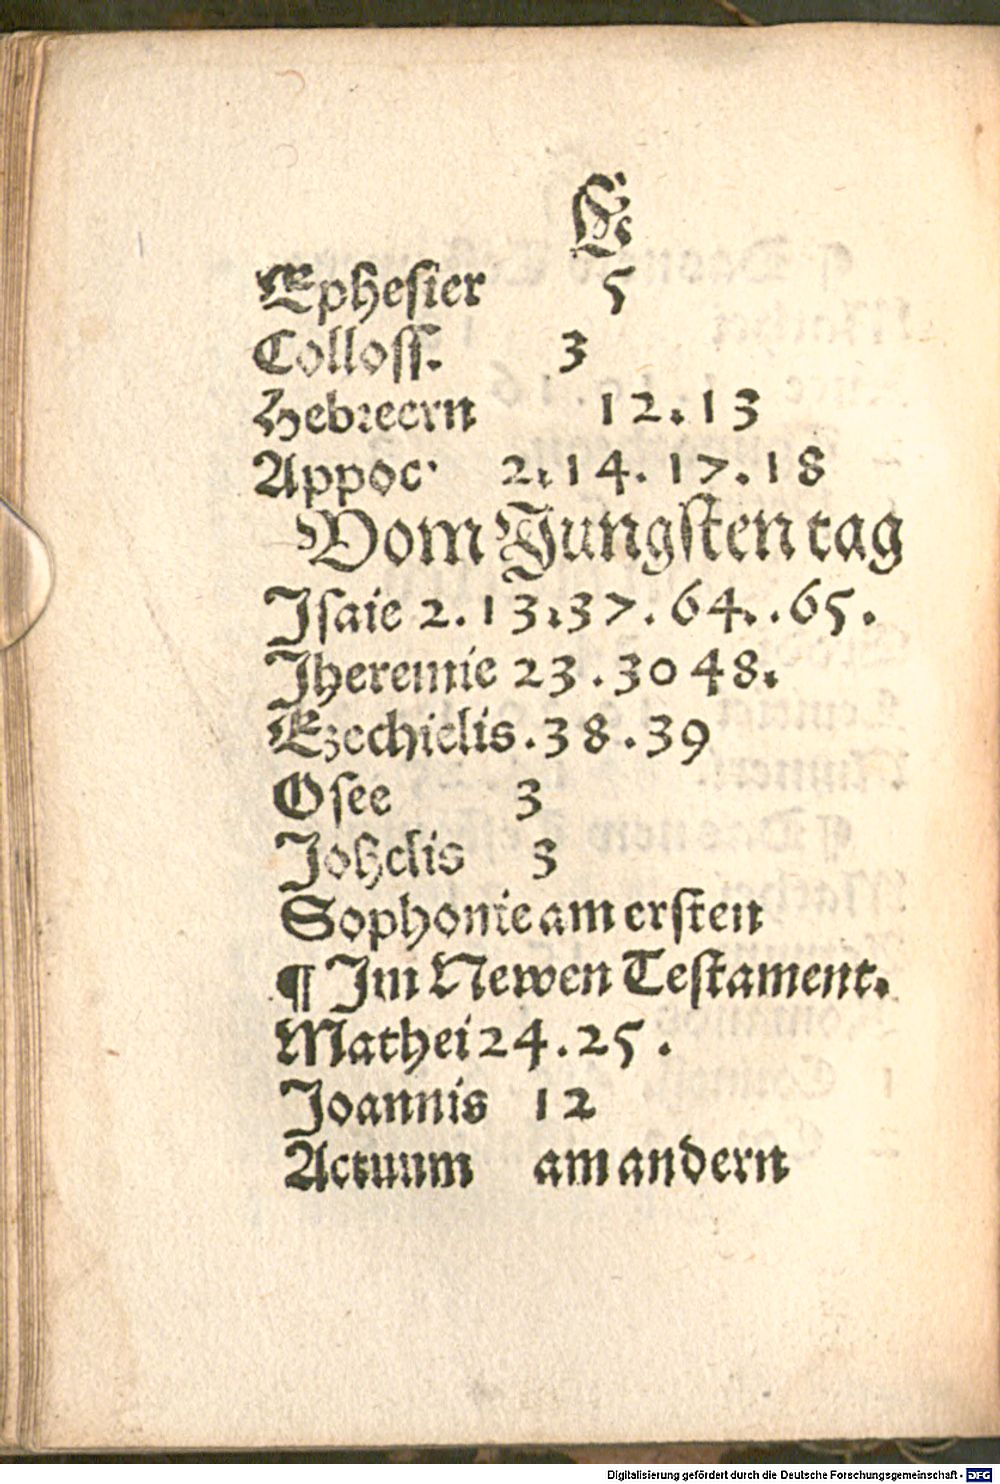 E
Epheſier 5
Colloſſ. 3
Hebreern 12.13
Appoc· 2.14.17.18
Vom Jungſten tag
Jſaie 2.13.37.64..65.
Jheremie 23.30 48.
Ezechielis.38.39
Oſee 3
Johelis 3
Sophonie am erſten
¶ Jm Newen Teſtament.
Mathei 24.25.
Joannis 12
Actuum am andern
Digitalisierung gefördert durch die Deutsche Forschungsgemeinschaft - DFG